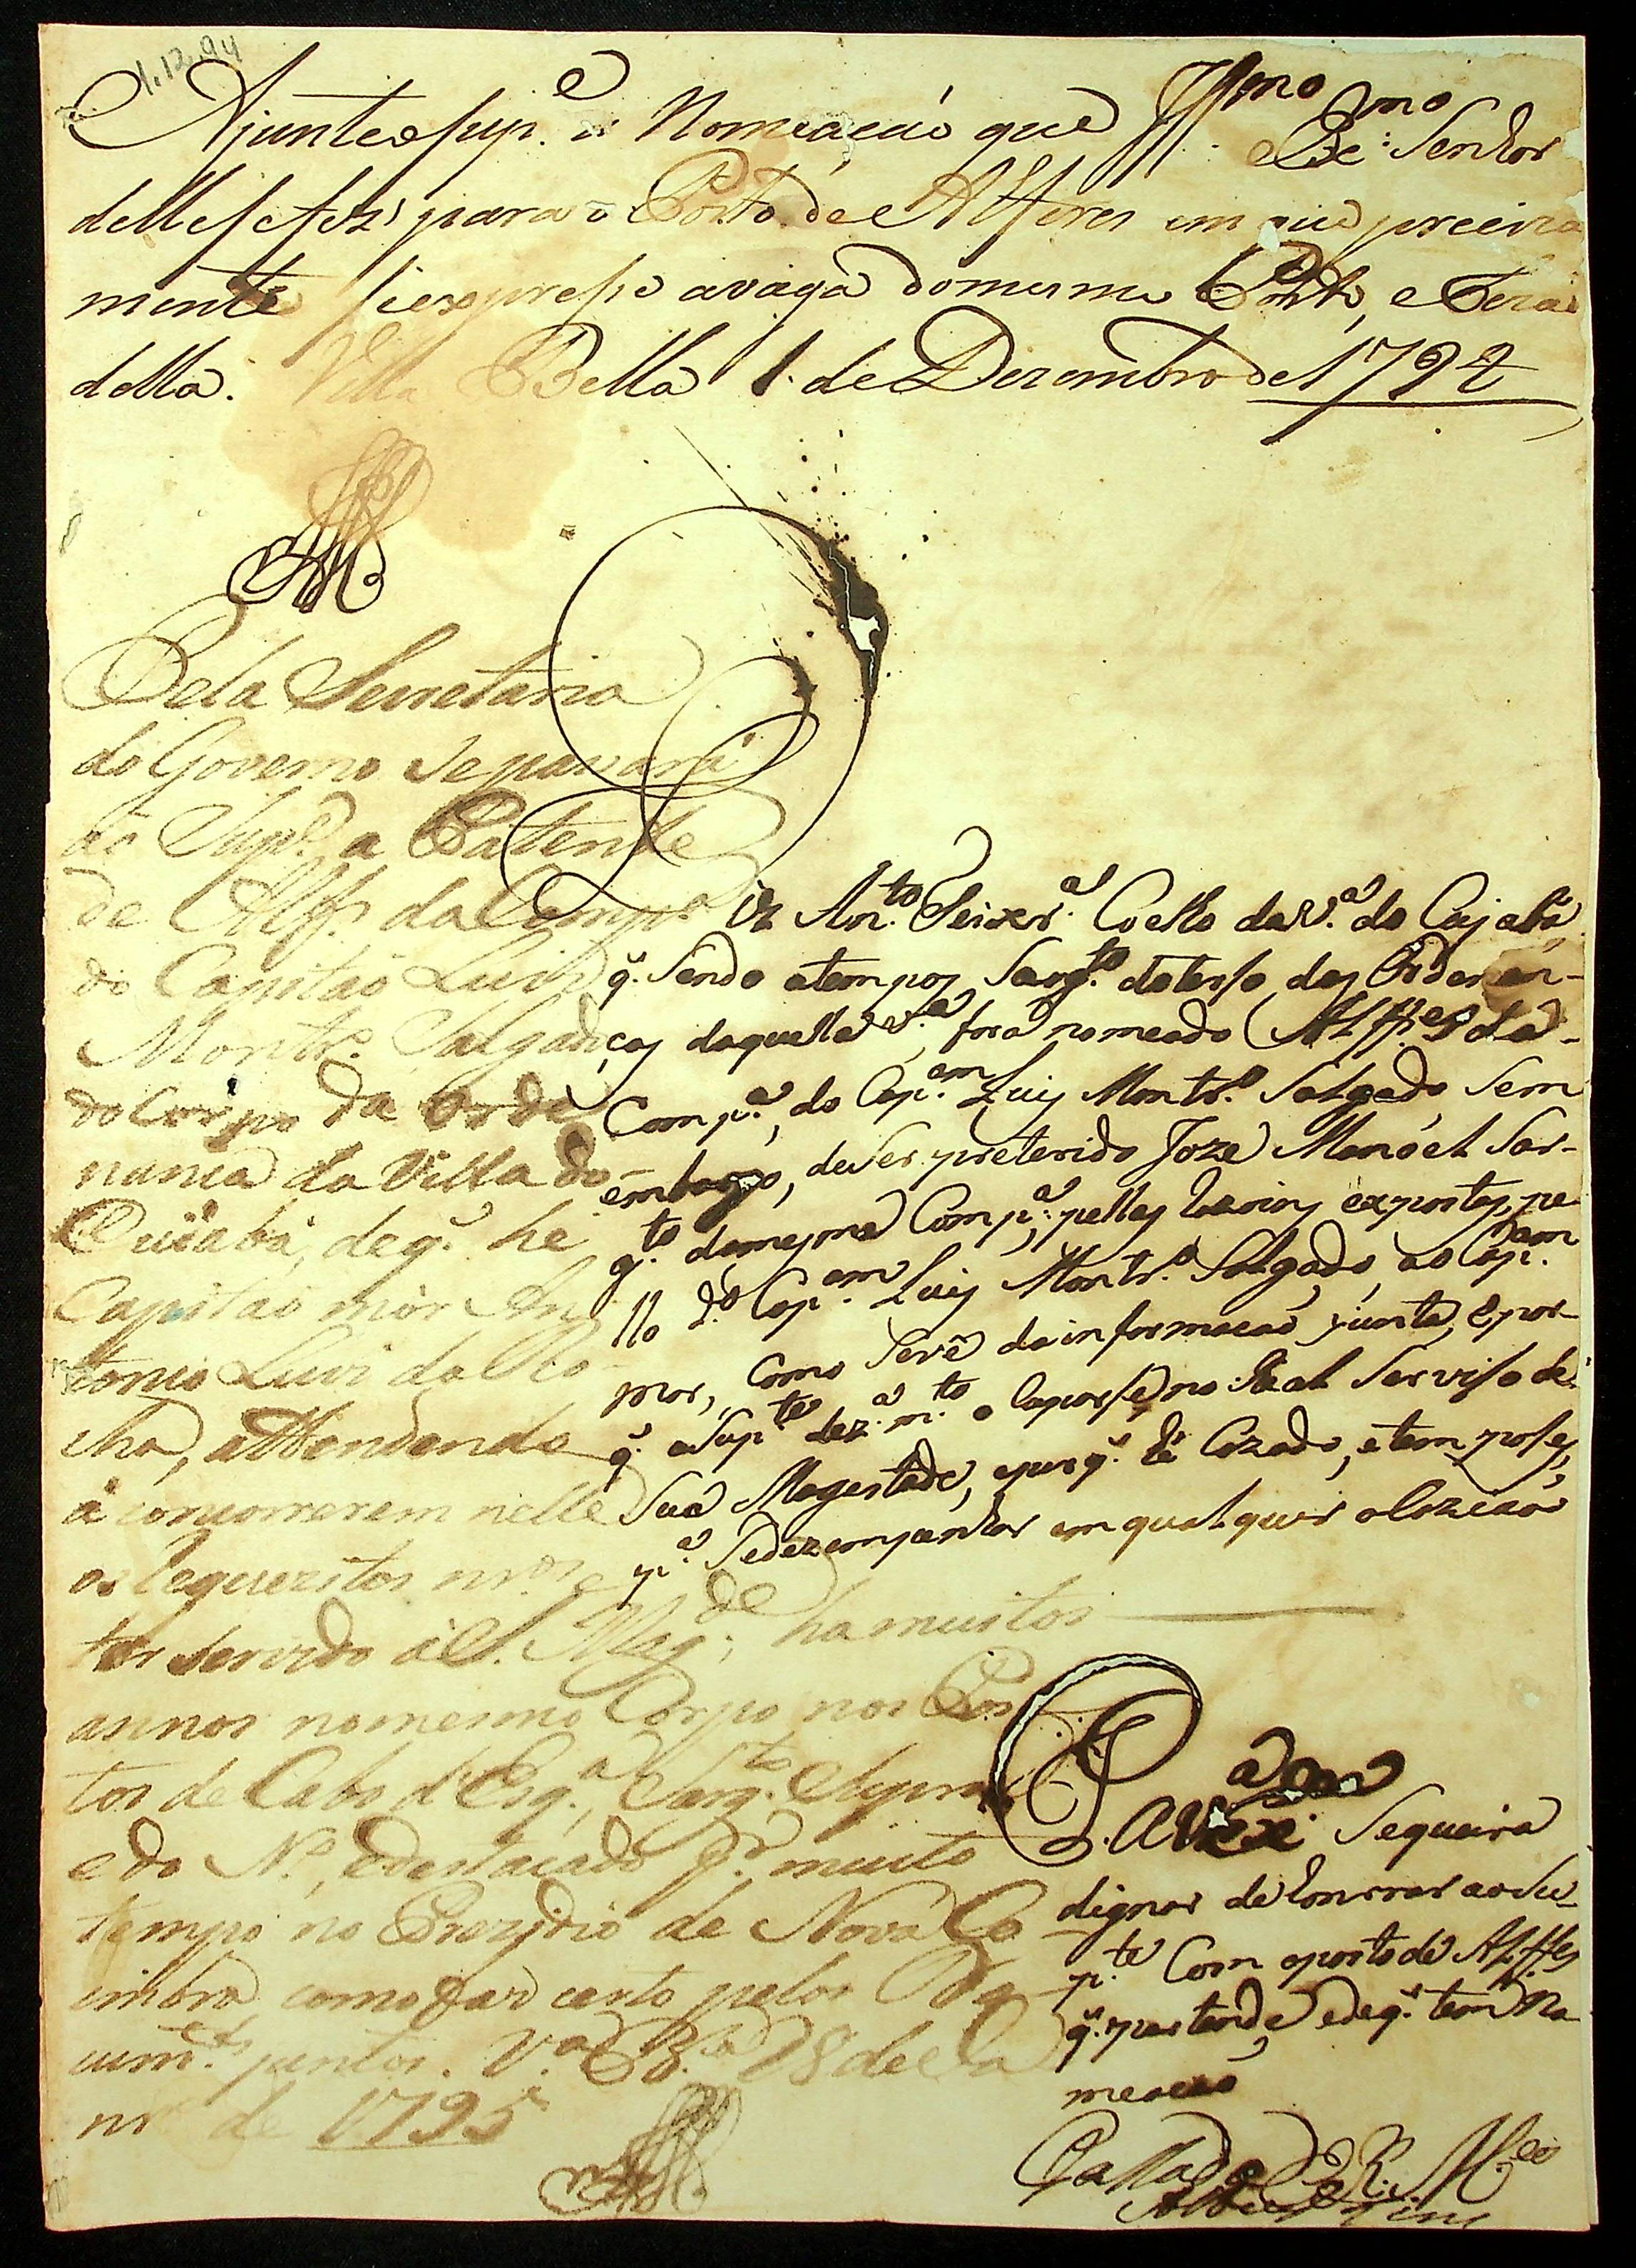 1.12.94
Ajunte o sup.e a Nomeaçaõ que
Illmo e Exmo Senhor
delle se fez para o Posto de Alferes em que preciza
mente se expresse a vaga do mesmo Posto, e
della. Villa Bella 1. de Dezembro de 1794
Pela Secretaria
do Governo se passará
ao Sup.e a Patente
de Alf.s da Comp.a
do Capitaõ Luis
Montr.o Salgado
do Corpo da Orde
nança da Villa do
Cuiabá, de q. he
Capitaõ mór An
tonio Luis da Ro
cha, attendendo
á concorrerem nelle
os requezitos nr.os e
ter servido á S. Mag.de ha muitos
annos no mesmo Corpo nos Pos
tos de Cabo d'Esq.a, Sarg.to Supra
e do N.o, e destacado p.r muito
tempo no Prezidio de Nova Co
imbra como faz certo pelos Do
cum.tos juntos. V.a B.a 28 de Ja
nr.o de 1795
Diz An.to Teixr.a Coelho da V.a do Cujabá,
q. sendo atempos Sarg.to do terso das Ordenan-
ças daquella V.a, fora nomeado Alff.es da
Comp.a, do Cap.am Luis Montr.o Salgado, sem
embargo, de ser preterido Joze Manoel Sar-
g.to da mesma Comp.a, pellas razoins expostas, pe
llo d.o Cap.am Luis Montr.o Salgado, ao Cap.am
mor, como se vê da informacaõ junta, e por-
q. o Sup.te dez.a m.to o Caparse no Real Serviso de
Sua Magestade, e por q. hé Cazado, e tem poses,
p.a se dezempenhar em qualquer oCaziaõ
P. a V. Ex.a Se queira
dignar de honrrar ao Su-
p.te Com o posto de Alffes
q. pertende, e de q. tem No
meacaõ
E. R. M.ce